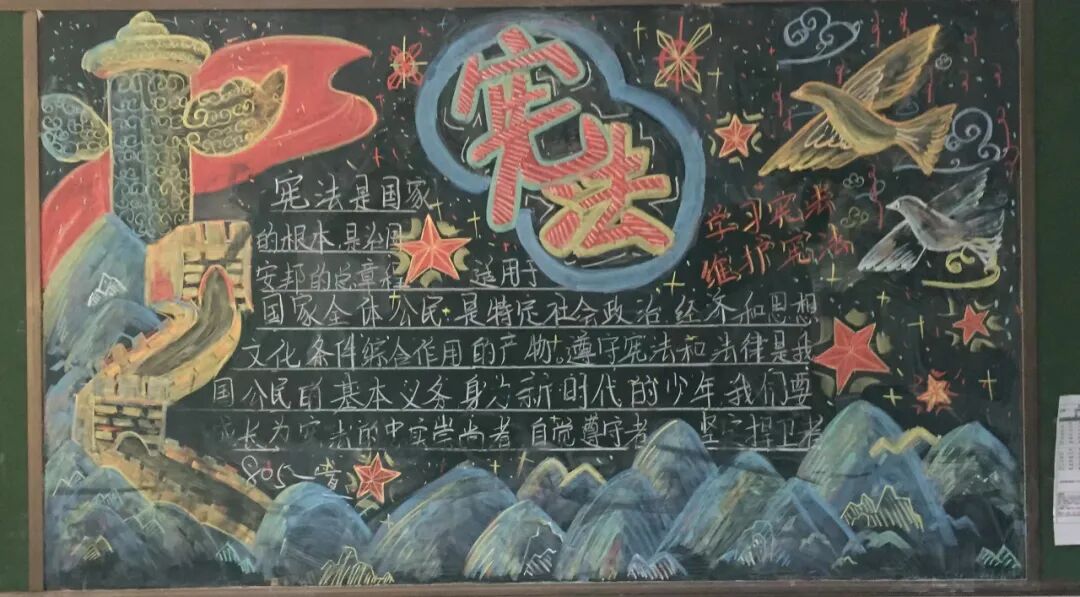 宪法
宪法是国家
的根本,是治国
安邦的总章程 适用于
国家全体公民,是特定社会政治经济和思想
文化条件综合作用的产物。遵守宪法和法律是我
国公民的基本义务,身为新时代的少年,我们要
成长为宪法的忠实崇尚者 自觉遵守者 坚定捍卫者
学习宪法
维护宪法
805